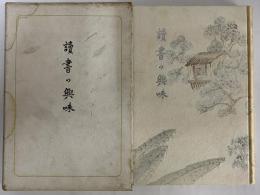 讀書の興味
讀書の興味